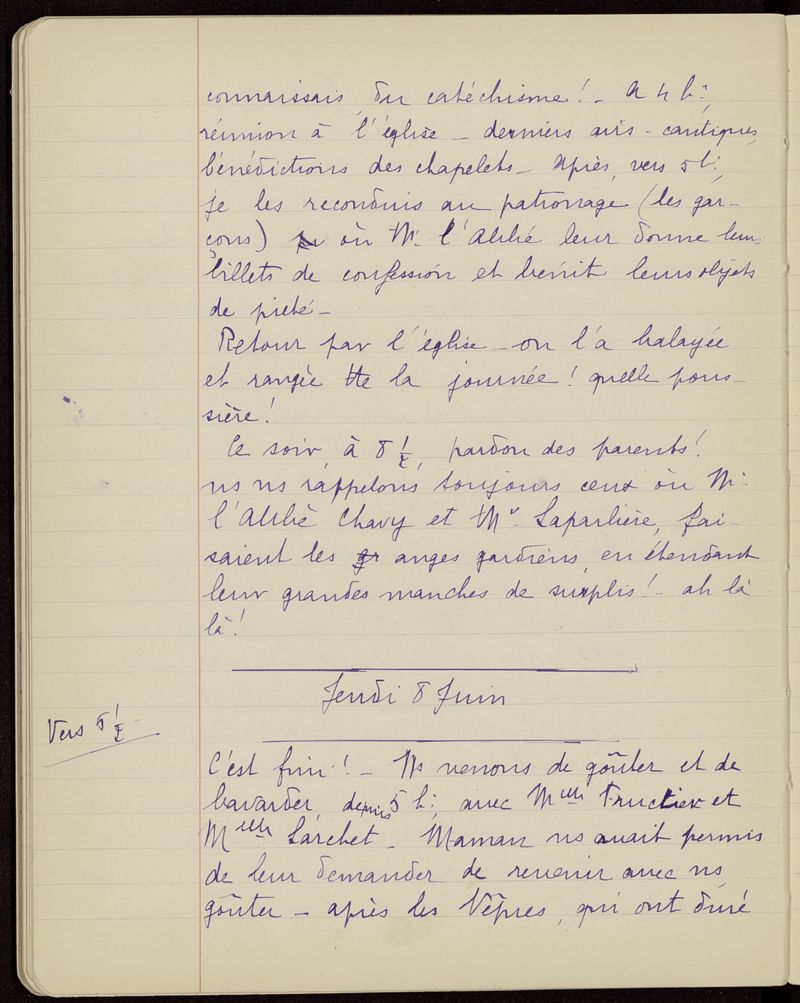 connaissais du catéchisme! - A 4 h:,
réunion à l'église - derniers avis - cantiques,
bénédictions des chapelets - Après, vers 5 h:,
je les reconduis au patronage (les gar-
çons) où M. l'Abbé leur donne leurs
billets de confession et bénit leurs objets
de piété -
Retour par l'église - on l'a balayée
et rangée de la journée! quelle pous-
sière!
Ce soir, à 8 1/2, pardon des parents!
ns ns rappelons toujours ceux où M.
l'Abbé Chavy et Mr. Laparlière, fai-
saient les gr anges gardiens, en étendant
leur grandes manches de surplis! - ah là
là!
Jeudi 8 Juin
Vers 5 1/2
C'est fini! - Ns venons de goûter et de
bavarder, depuis 5 h:, avec Melle Fructier et
Melle Larchet - Maman ns avait permis
de leur demander de revenir avec ns
goûter - après les Vêpres, qui ont duré